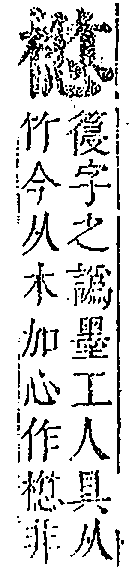 字之譌墨工人具从
竹今从木加心作非